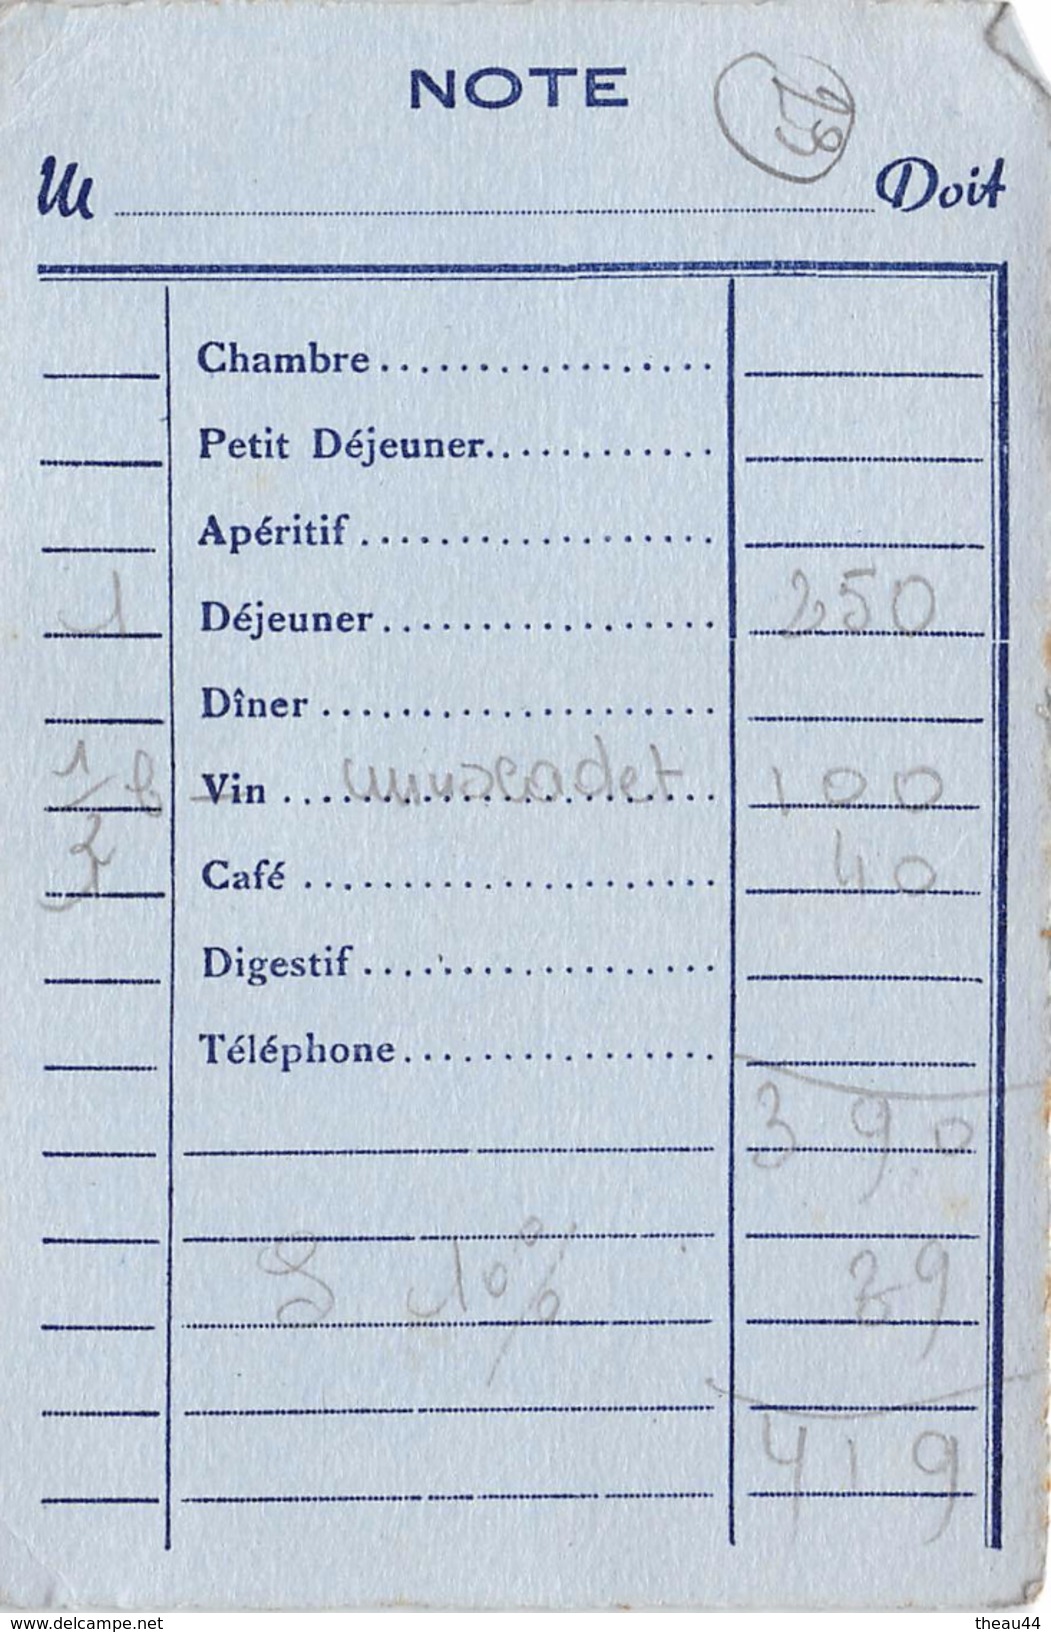 NOTE
M Doit
Chambre
Petit Déjeuner
Apéritif
1 Déjeuner 250
Dîner
1/2 Vin muscadet 100
Café 40
Digestif
Téléphone
390
S 10% 39
419
www.delcampe.net theau44